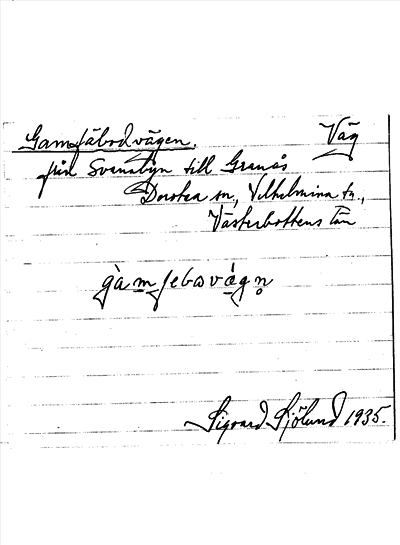 Gamfäbodvägen. Väg
från Svanabyn till Granås
Dorotea sn., Vilhelmina tn.,
Västerbottens län
gàmfebωvágn̥
Sigvard Sjölund 1935.